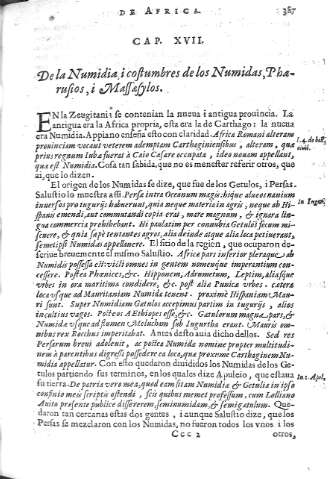 DE AFRICA. 387
CAP. XVII.
De la Numidia, i costumbres de los Numidas, Pha-
rusios, i Massasylos.
EN la Zeugitani se contenian la nueva i antigua provincia. La
antigua era la Africa propria, esta era la de Carthago: la nueva
era Numidia. Appiano enseña esto con claridad. Africa Romani alteram
provinciam vocant veterem ademptam Carthaginiensibus, alteram, quæ
prius regnum Iuba fuerat à Caio Cæsare occupata, ideo novam appellant,
quæ est Numidia. Cosa tan sabida, que no es menester referir otros, que
assi, que lo dizen.
El origen de los Numidas se dize, que fue de los Getulos, i Persas.
Salustio lo muestra assi. Persæ intra Oceanum magis: hique alveos navium
inversos pro tugurijs habuerunt, quia neque materia in agris, neque ab Hi-
spanis emendi, aut commutandi copia erat, mare magnum, & ignara lin-
gua commercia prohibebant. Hi paulatim per connubia Getulis secum mi-
scuere, & quia sæpe tentantes agros, alia deinde atque alia loca petiverant,
semetipsi Numidas appellavere. El sitio de la region, que ocuparon de-
scrive brevemente el mismo Salustio. Africæ pars inferior pleraque, ab
Numidis possessa est: victi omnes in gentem nomenque imperantium con-
cessere. Postea Phœnices, &c. Hipponem, Adrumetum, Leptim, aliasque
urbes in ora maritima condidere, &c. post alia Punica urbes. cetera
loca usque ad Mauritaniam Numidæ tenent. proximè Hispaniam Mau-
ri sunt. Super Numidiam Getulos accepimus partim in tugurijs, alios
incultius vagos. Post eos Æthiopes esse, &c. Getulorum magna pars, &
Numidæ usque ad flumen Melucham sub Iugurtha erant. Mauris om-
nibus rex Bocchus imperitabat. Antes desto avia dicho dellos. Sed res
Persarum brevi adolevit, ac postea Numidæ nomine propter multitudi-
nem à parentibus digressi possedere ea loca, quæ proximè Carthaginem Nu-
midia appellatur. Con esto quedaron divididos los Numidas de los Ge-
tulos partiendo sus terminos, en los quales dize Apuleio, que estava
su tierra. De patria vero mea, quod eam sitam Numidiæ & Getuliæ in ipso
confinio meis scriptis ostendi, scis quibus memet professum, cum Lolliano
Avito præsente publicè dissererem, seminumidam, & semigætulum. Que-
daron tan cercanas estas dos gentes, i aunque Salustio dize, que los
Persas se mezclaron con los Numidas, no fueron todos los unos i los
Ccc 2 otros,
In Iugurt.
In 2. Apol.